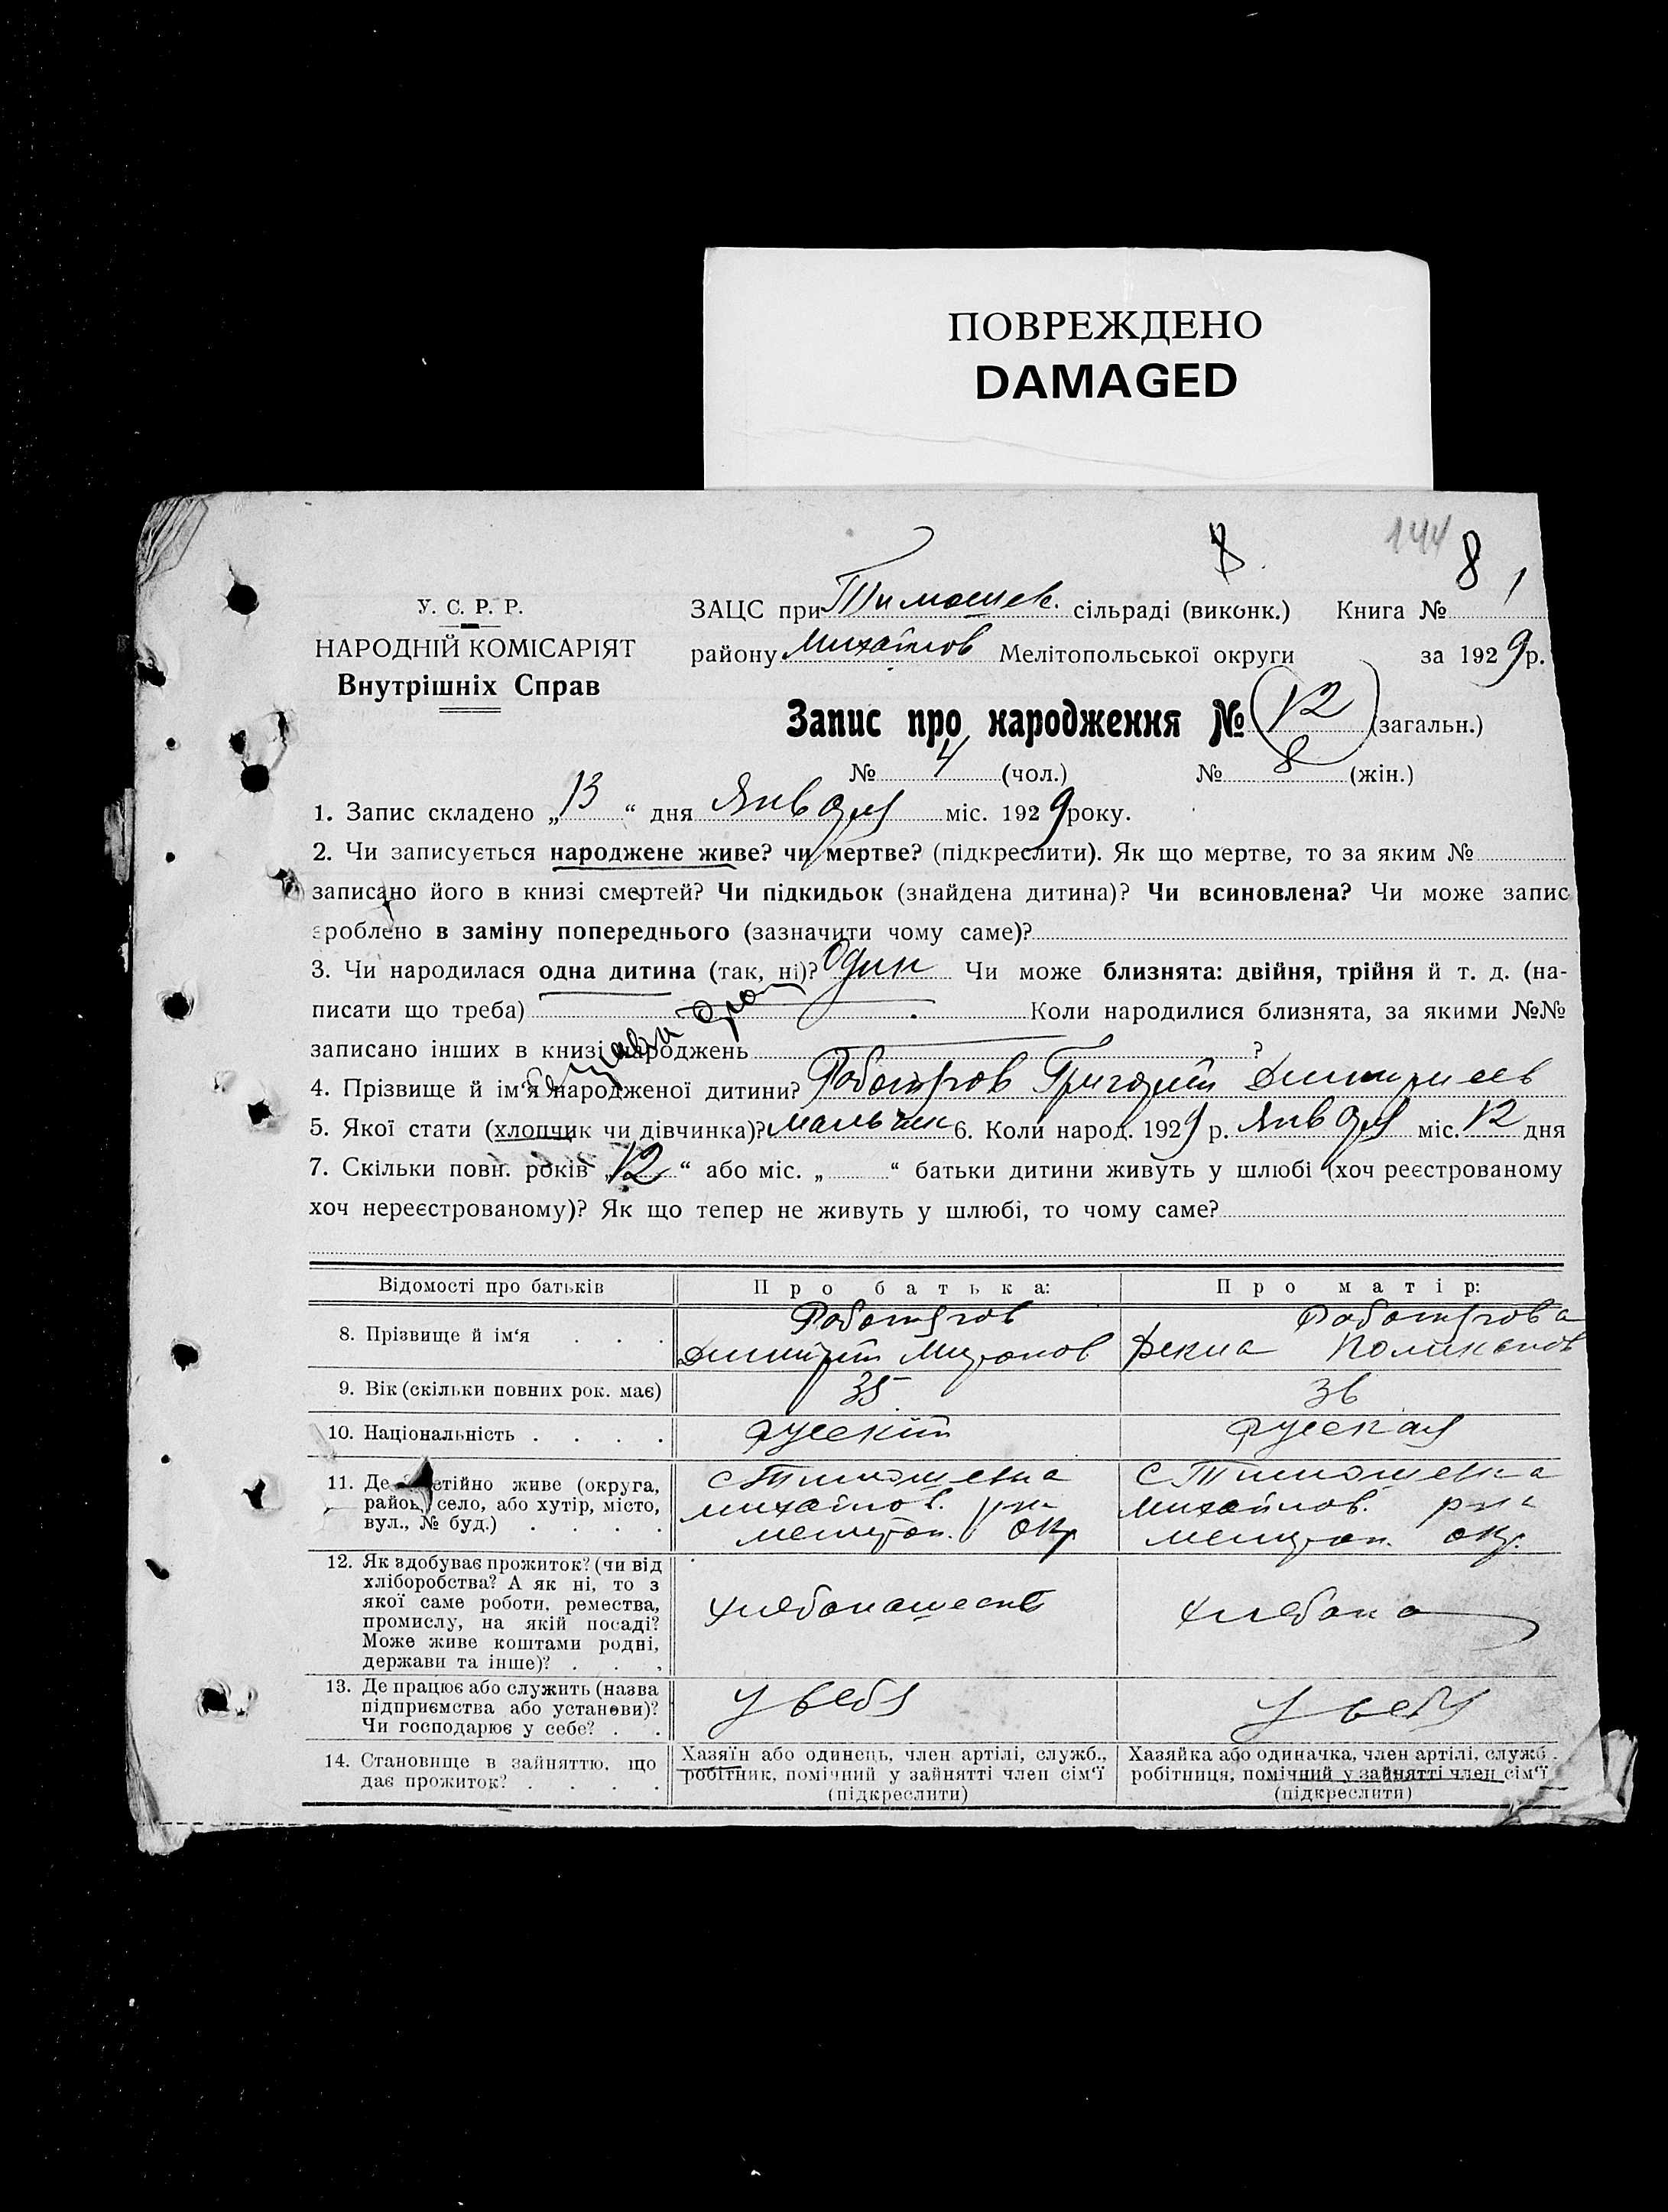 ПОВРЕЖДЕНО
DAMAGED
144
8
8
У. С. Р. Р.
НАРОДНІЙ КОМІСАРІЯТ
Внутрішніх Справ
ЗАЦС при Тимошев. сільраді (виконк.) Книга № 1
району Михайлов Мелітопольської округи за 1929 р.
Запис про народження № 12 (загальн.)
№ 4 (чол.) № 8 (жін.)
1. Запис складено „13“ дня Января міс. 1929 року.
2. Чи записується народжене живе? чи мертве? (підкреслити). Як що мертве, то за яким №
записано його в книзі смертей? Чи підкидьок (знайдена дитина)? Чи всиновлена? Чи може запис
зроблено в заміну попереднього (зазначити чому саме)?
3. Чи народилася одна дитина (так, ні)? Один Чи може близнята: двійня, трійня й т. д. (на-
писати що треба) Коли народилися близнята, за якими №№
записано інших в книзі народжень ?
4. Прізвище й ім‘я народженої дитини? Работягов Григорий Дмитриев
5. Якої стати (хлопчик чи дівчинка)? мальчик 6. Коли народ. 1929 р. Января міс. 12 дня
7. Скільки повн. років „12“ або міс. „ “ батьки дитини живуть у шлюбі (хоч реєстрованому
хоч нереєстрованому)? Як що тепер не живуть у шлюбі, то чому саме?
Відомості про батьків Про батька: Про матір:
8. Прізвище й ім‘я Работягов Дмитрий Миронов Работягова Фекла
9. Вік (скільки повних рок. має) 35 36
10. Національність русский русская
11. Де постійно живе (округа,
район, село, або хутір, місто,
вул., № буд.)
с Тимошевка
михайлов. р-на
мелитоп. окр
с Тимошевка
михайлов. р-на
мелитоп. окр.
12. Як здобуває прожиток? (чи від
хліборобства? А як ні, то з
якої саме роботи, ремества,
промислу, на якій посаді?
Може живе коштами родні,
держави та інше)?
хлебопашеств
хлебопа
13. Де працює або служить (назва
підприємства або установи)?
Чи господарює у себе?
у себя
у себя
14. Становище в зайняттю, що
дає прожиток?
Хазяїн або одинець, член артілі, служб.,
робітник, помічний у зайнятті член сім‘ї
(підкреслити)
Хазяйка або одиначка, член артілі, служб.
робітниця, помічний у зайнятті член сім‘ї
(підкреслити)